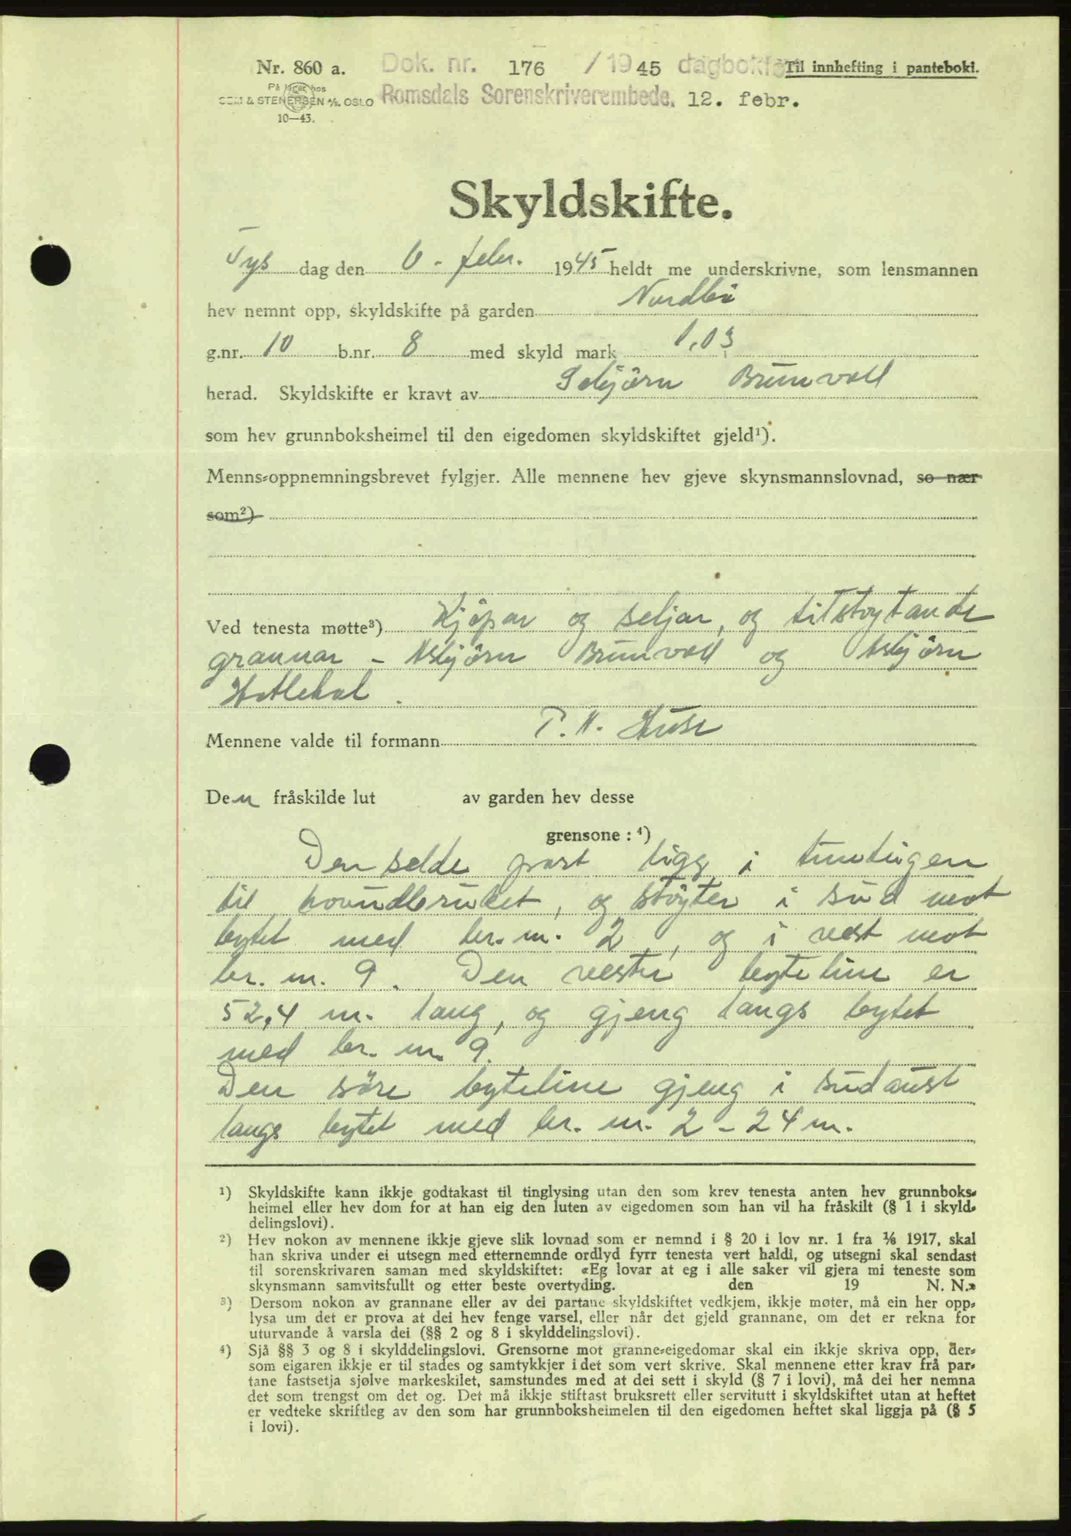 Nr. 860 a.
Dok. nr. 176 /1945 dagbokf
Til innhefting i panteboki.
På lager hos
SEM & STENERSEN A/S. OSLO
10—43.
Romsdals Sorenskriverembede, 12. febr.
Skyldskifte.
Tys dag den 6. febr. 1945 heldt me underskrivne, som lensmannen
hev nemnt opp, skyldskifte på garden Nordbö
g.nr. 10 b.nr. 8 med skyld mark 1,03
herad. Skyldskifte er kravt av Esbjörn Brunvoll
som hev grunnboksheimel til den eigedomen skyldskiftet gjeld¹).
Menns-oppnemningsbrevet fylgjer. Alle mennene hev gjeve skynsmannslovnad, so nær
som²)
Ved tenesta møtte³) Kjöpar og seljar, og tilstöytande
grannar – Asbjörn Brunvoll og Asbjörn
Hatlehol.
Mennene valde til formann P. N. Huse
Den fråskilde lut av garden hev desse
grensone: ⁴)
Den selde part ligg i tunutigen
til hovudbruket, og stöyter i sud mot
bytet med br. nr. 2, og i vest mot
br. nr. 9. Den vestre byteline er
52,4 m. lang, og gjeng langs bytet
med br. nr. 9.
Den söre byteline gjeng i sudaust
langs bytet med br. nr. 2 – 24 m.
¹) Skyldskifte kann ikkje godtakast til tinglysing utan den som krev tenesta anten hev grunnboks-
heimel eller hev dom for at han eig den luten av eigedomen som han vil ha fråskilt (§ 1 i skyld-
delingslovi).
²) Hev nokon av mennene ikkje gjeve slik lovnad som er nemnd i § 20 i lov nr. 1 fra ⅟₆ 1917, skal
han skriva under ei utsegn med etternemnde ordlyd fyrr tenesta vert haldi, og utsegni skal sendast
til sorenskrivaren saman med skyldskiftet: «Eg lovar at eg i alle saker vil gjera mi teneste som
skynsmann samvitsfullt og etter beste overtyding. den 19 N. N.»
³) Dersom nokon av grannane eller av dei partane skyldskiftet vedkjem, ikkje møter, må ein her opp-
lysa um det er prova at dei hev fenge varsel, eller når det gjeld grannane, om det er rekna for
uturvande å varsla dei (§§ 2 og 8 i skylddelingslovi).
⁴) Sjå §§ 3 og 8 i skylddelingslovi. Grensorne mot granne-eigedomar skal ein ikkje skriva opp, der-
som eigaren ikkje er til stades og samtykkjer i det som vert skrive. Skal mennene etter krav frå par-
tane fastsetja sjølve markeskilet, samstundes med at dei sett i skyld (§ 7 i lovi), må dei her nemna
det som trengst om det og. Det må ikkje stiftast bruksrett eller servitutt i skyldskiftet utan at heftet
er vedteke skriftleg av den som har grunnboksheimelen til den eigedomen heftet skal liggja på (§ 5
i lovi).